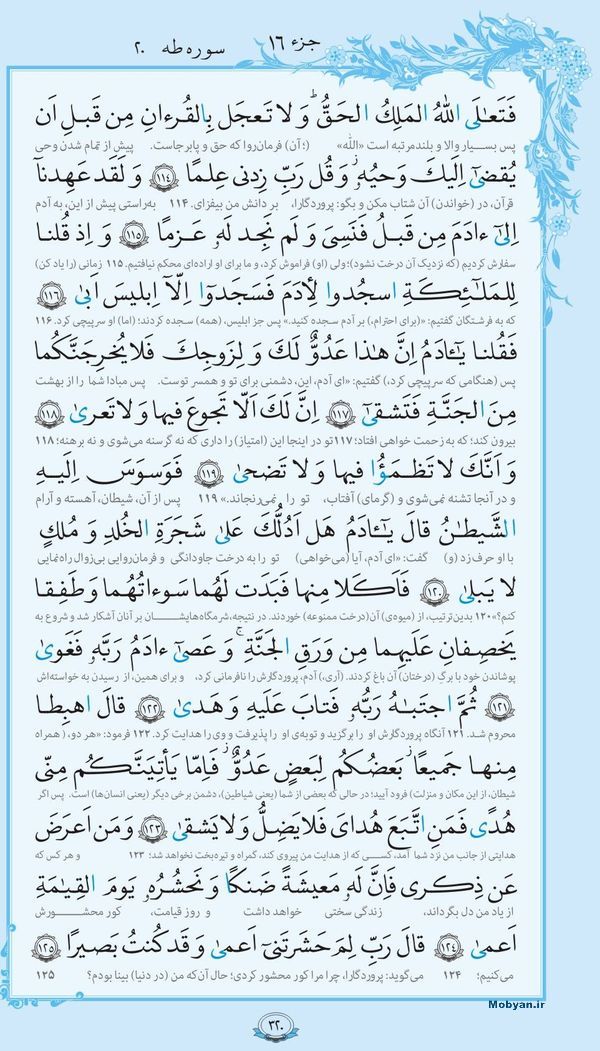 جزء ۱۶ سوره طه ۲۰
فَتَعـٰلَى اللهُ المَلِكُ الحَقُّ ۗ وَ لا تَعجَل بِالقُرءانِ مِن قَبلِ اَن
پس بسیار والا و بلندمرتبه است «الله» (؛ آن) فرمان‌روا که حق و پابرجاست. پیش از تمام شدن وحی
يُقضىٰٓ اِلَيكَ وَحيُهُۥ ۖ وَ قُل رَبِّ زِدنى عِلمًا ﴿۱۱۴﴾ وَ لَقَد عَهِدنآ
قرآن، در (خواندن) آن شتاب مکن و بگو: پروردگارا، بر دانش من بیفزای. ۱۱۴ به‌راستی پیش از این، به آدم
اِلىٰٓ ءادَمَ مِن قَبلُ فَنَسِىَ وَ لَم نَجِد لَهُۥ عَزمًا ﴿۱۱۵﴾ وَ اِذ قُلنا
سفارش کردیم (که نزدیک آن درخت نشود)؛ ولی (او) فراموش کرد، و ما برای او اراده‌ای محکم نیافتیم. ۱۱۵ زمانی (را یاد کن)
لِلمَلـٰٓئِكَةِ اسجُدوا لِأدَمَ فَسَجَدوٓا اِلّآ اِبليسَ اَبىٰ ﴿۱۱۶﴾
که به فرشتگان گفتیم: «(برای احترام،) بر آدم سجده کنید.» پس جز ابلیس، (همه) سجده کردند؛ (اما) او سرپیچی کرد. ۱۱۶
فَقُلنا يـٰٓـَٔادَمُ اِنَّ هـٰذا عَدُوٌّ لَكَ وَ لِزَوجِكَ فَلا يُخرِجَنَّكُما
پس (هنگامی که سرپیچی کرد،) گفتیم: «ای آدم، این، دشمنی برای تو و همسر توست. پس مبادا شما را از بهشت
مِنَ الجَنَّةِ فَتَشقىٰٓ ﴿۱۱۷﴾ اِنَّ لَكَ اَلّا تَجوعَ فيها وَ لا تَعرىٰ ﴿۱۱۸﴾
بیرون کند؛ که به زحمت خواهی افتاد؛ ۱۱۷ تو در اینجا این (امتیاز) را داری که نه گرسنه می‌شوی و نه برهنه؛ ۱۱۸
وَ اَنَّكَ لا تَظمَؤُا فيها وَ لا تَضحىٰ ﴿۱۱۹﴾ فَوَسوَسَ اِلَيهِ
و در آنجا تشنه نمی‌شوی و (گرمای) آفتاب، تو را نمی‌رنجاند.» ۱۱۹ پس از آن، شیطان، آهسته و آرام
الشَّيطـٰنُ قالَ يـٰٓـَٔادَمُ هَل اَدُلُّكَ عَلىٰ شَجَرَةِ الخُلدِ وَ مُلكٍ
با او حرف زد (و) گفت: «ای آدم، آیا (می‌خواهی) تو را به درخت جاودانگی و فرمان‌روایی بی‌زوال راه‌نمایی
لا يَبلىٰ ﴿۱۲۰﴾ فَاَكَلا مِنها فَبَدَت لَهُما سَوءاتُهُما وَ طَفِقا
کنم؟» ۱۲۰ بدین‌ترتیب، از (میوه‌ی) آن (درخت ممنوعه) خوردند. در نتیجه، شرمگاه‌هایشان بر آنان آشکار شد و شروع به
يَخصِفانِ عَلَيهِما مِن وَرَقِ الجَنَّةِ ۚ وَ عَصىٰٓ ءادَمُ رَبَّهُۥ فَغَوىٰ
پوشاندن خود با برگ (درختان) آن باغ کردند. (آری،) آدم، پروردگارش را نافرمانی کرد، و برای همین، از رسیدن به خواسته‌اش
﴿۱۲۱﴾ ثُمَّ اجتَبـٰهُ رَبُّهُۥ فَتابَ عَلَيهِ وَ هَدىٰ ﴿۱۲۲﴾ قالَ اهبِطا
محروم شد. ۱۲۱ آنگاه پروردگارش او را برگزید و توبه‌ی او را پذیرفت و وی را هدایت کرد. ۱۲۲ فرمود: «هر دو، (همراه
مِنها جَميعًا ۖ بَعضُكُم لِبَعضٍ عَدُوٌّ ۖ فَاِمّا يَأتِيَنَّكُم مِنّى
شیطان، از این مکان و منزلت) فرود آیید؛ در حالی که بعضی از شما (یعنی شیاطین)، دشمن برخی دیگر (یعنی انسان‌ها) است. پس اگر
هُدًى فَمَنِ اتَّبَعَ هُداىَ فَلا يَضِلُّ وَ لا يَشقىٰ ﴿۱۲۳﴾ وَ مَن اَعرَضَ
هدایتی از جانب من نزد شما آمد، کسی که از هدایت من پیروی کند، گمراه و تیره‌بخت نخواهد شد؛ ۱۲۳ و هر کس که
عَن ذِكرى فَاِنَّ لَهُۥ مَعيشَةً ضَنكًا وَ نَحشُرُهُۥ يَومَ القِيـٰمَةِ
از یاد من دل بگرداند، زندگی سختی خواهد داشت و روز قیامت، کور محشورش
اَعمىٰ ﴿۱۲۴﴾ قالَ رَبِّ لِمَ حَشَرتَنىٓ اَعمىٰ وَ قَد كُنتُ بَصيرًا ﴿۱۲۵﴾
می‌کنیم؛ ۱۲۴ می‌گوید: پروردگارا، چرا مرا کور محشور کردی؛ حال آن‌که من (در دنیا) بینا بودم؟ ۱۲۵
Mobyan.ir
۳۲۰